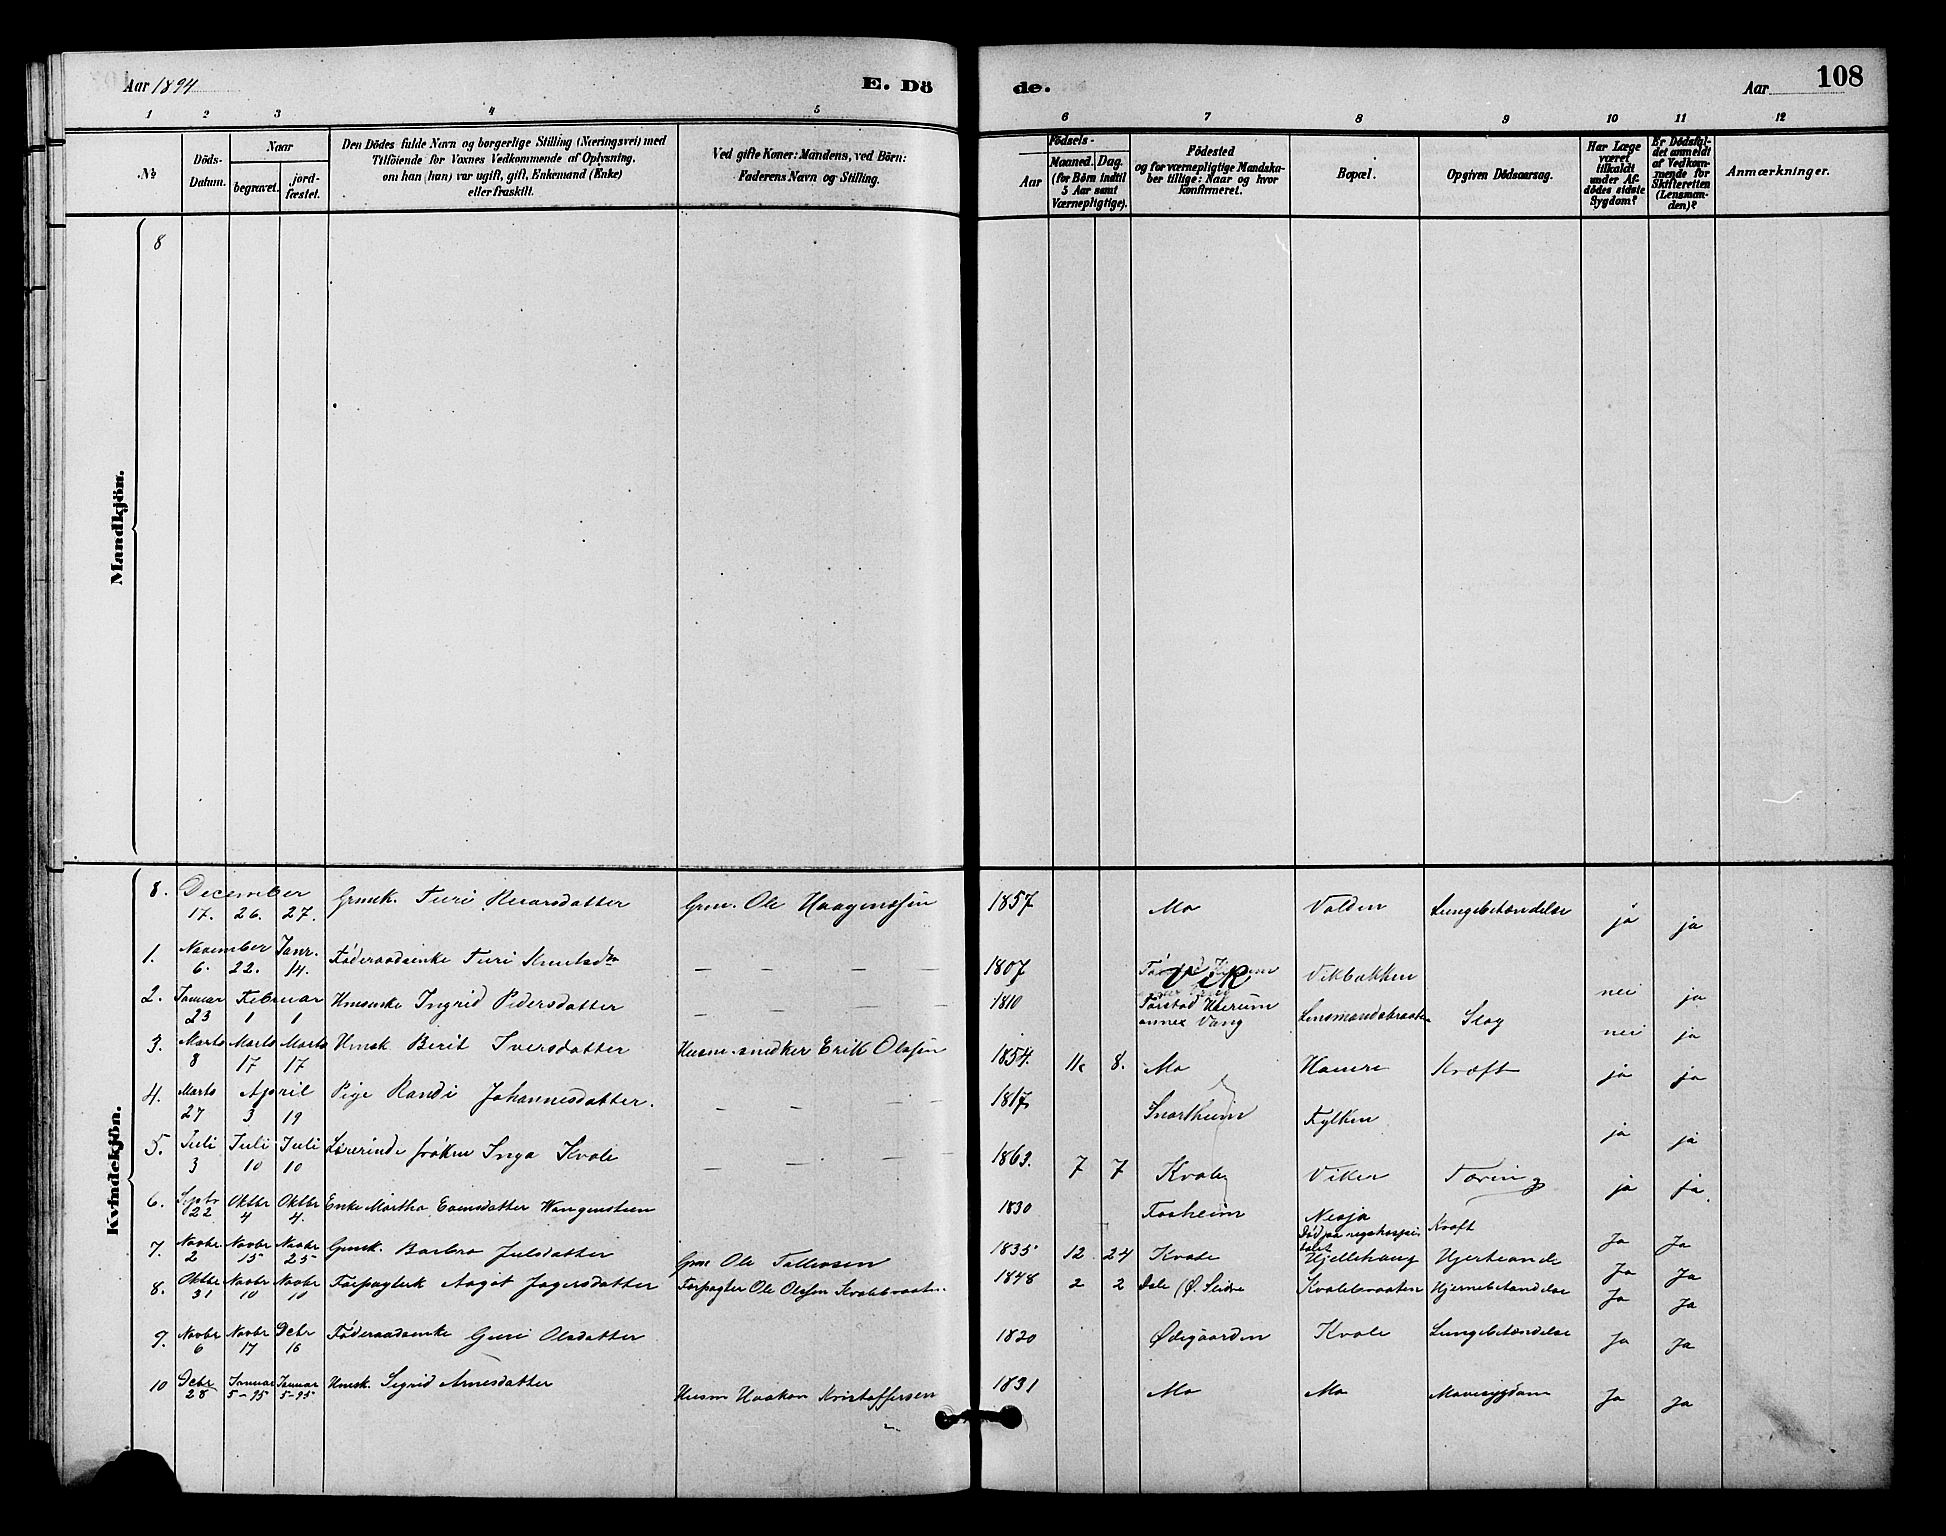 Aar 1894
E. Dö
de.
Aar
108
1 2 3 4 5 6 7 8 9 10 11 12
№
Döds-
Datum.
Naar
begravet.
jord-
fæstet.
Den Dödes fulde Navn og borgerlige Stilling (Næringsvei) med
Tilföiende for Voxnes Vedkommende af Oplysning,
om han (hun) var ugift, gift, Enkemand (Enke)
eller fraskilt.
Ved gifte Koner: Mandens, ved Börn:
Faderens Navn og Stilling.
Födsels-
Aar
Maaned. Dag.
(for Börn indtil
5 Aar samt
Værnepligtige).
Födested
og for værnepligtige Mandska-
ber tillige: Naar og hvor
konfirmeret.
Bopæl.
Opgiven Dödsaarsag.
Har Læge
været
tilkaldt
under Af-
dödes sidste
Sygdom?
Er Dödsfal-
det anmeldt
af Vedkom-
mende for
Skifteretten
(Lensman-
den)?
Anmærkninger.
Mandkjön.
8
Kvindekjön.
8. December
17. 26. 27. Grmsk. Turi Ivarsdatter Grm. Ole Haagensen 1857 Mo Volden Lungebetændelse ja ja
1. November Janr.
6. 22. 14. Føderaadsenke Turi Knutsdtr — — — — 1807 Vik Vikbakken nei ja
2. Januar Februar
23 1 1 Hmsenke Ingrid Pedersdatter — — — — 1810 Førstad Hærum
annex Vang Lensmandsbraaten Slag nei ja
3. Marts Marts Marts
8 17 17 Hmsk Berit Iversdatter Husm. snedker Erik Olsen 1854. 11 8. Mo Hamre Kræft ja ja
4. Marts April
27 3 19 Pige Randi Johannesdatter. — — — — 1817 Snortheim Fylken ja ja
5. Juli Juli Juli
3 10 10 Lærerinde frøken Inga Kvale — — — — 1863. 7 7 Kvale Viker Tæring ja ja.
6. Septr Oktbr Oktbr
22 4 4. Enke Martha Wangensteen 1830 Fosheim Kræft Ja Ja
7. Novbr Novbr Novbr
2 15 25 Grmsk. Barbro Julsdatter Grm Ole Tollevsen 1835 12 24 Kvale Hjellehaug Hjerteonde Ja Ja
8. Oktbr Novbr Novbr
31 10 10 Forpagterk Aagot Jogersdatter Forpagter Ole Olsen Kvalebraaten. 1848 2 2 Dale (Ø. Slidre Kvalebraaten Hjernebetændelse Ja Ja
9. Novbr Novbr Dcbr
6 17 16 Føderaadsenke Guri Olsdatter 1820 Ødegaarden Kvale Lungebetændelse Ja Ja
10 Dcbr Januar Januar
28 5-95 5-95 Hmsk. Sigrid Arnesdatter Husm Haakon Kristoffersen 1831 Mo Mo Mavesygdom Ja Ja